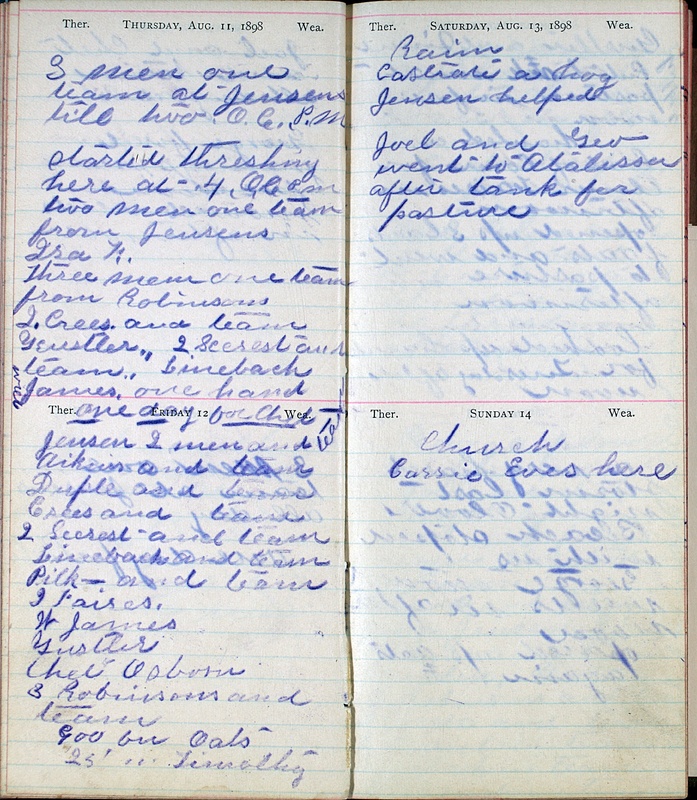 Ther. THURSDAY, AUG. 11, 1898 Wea.
3 men one
team at Jensens
till two O.C. P.M
started threshing
here at 4, Oc
two men one team
from Jensens
Ira
three men one team
from Robinsons
2. Crees. and team
Gustler,, 2 Secrest and
team,, Lineback
Will James. one hand
one day for
Ther. FRIDAY 12 Wea.
Jensen 2 men and
and team
and team
Crees and team
2 Secrest and team
Lineback and team
Pilk— and team
2 Faires.
W James
Gustler
Chet Osborn
3 Robinsons and
team
900 bu Oats
25 " Timothy
Ther. SATURDAY, AUG. 13, 1898 Wea.
Rain
Castrate a hog
Jensen helped
Joel and Geo
went to Atalissa
after tank for
pasture
Ther. SUNDAY 14 Wea.
Church
Cassie Eves here